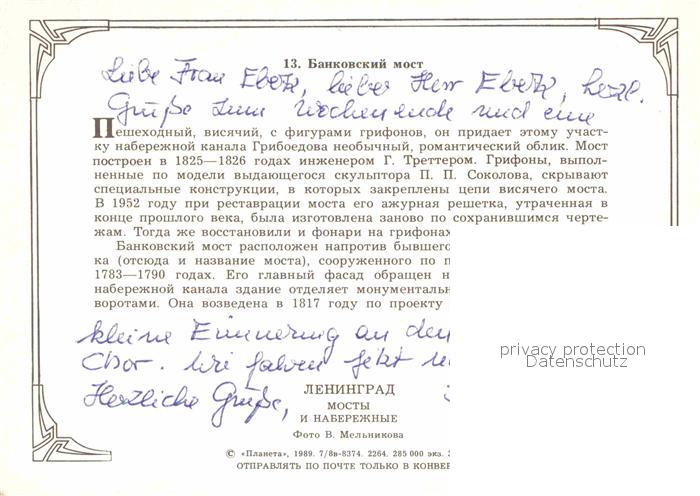 13. Банковский мост
Liebe Frau Ebetz, lieber Herr Ebetz, herzl.
Grüße zum Wochenende und eine
Пешеходный, висячий, с фигурами грифонов, он придает этому участ-
ку набережной канала Грибоедова необычный, романтический облик. Мост
построен в 1825—1826 годах инженером Г. Треттером. Грифоны, выпол-
ненные по модели выдающегося скульптора П. П. Соколова, скрывают
специальные конструкции, в которых закреплены цепи висячего моста.
В 1952 году при реставрации моста его ажурная решетка, утраченная в
конце прошлого века, была изготовлена заново по сохранившимся черте-
жам. Тогда же восстановили и фонари на грифонах
Банковский мост расположен напротив бывшего
ка (отсюда и название моста), сооруженного по п
1783—1790 годах. Его главный фасад обращен н
набережной канала здание отделяет монументальн
воротами. Она возведена в 1817 году по проекту
kleine Erinnerung an den
Chor. Wir fahren jetzt
Herzliche Grüße,
privacy protection
Datenschutz
ЛЕНИНГРАД
МОСТЫ
И НАБЕРЕЖНЫЕ
Фото В. Мельникова
© «Планета», 1989. 7/8в-8374. 2264. 285 000 экз.
ОТПРАВЛЯТЬ ПО ПОЧТЕ ТОЛЬКО В КОНВЕР